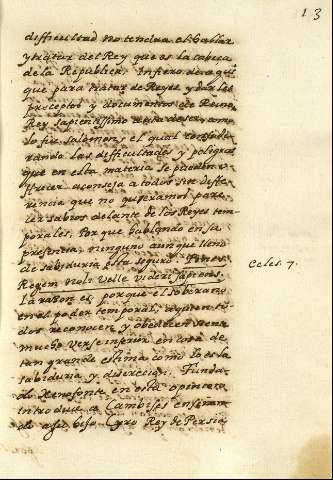 13
difficultad no tendra el hablar
y tratar del Rey que es la cabeça
de la Republica. Infiero de aqui
que para tratar de Reyes, y dar les
preceptos y documentos de Reyne
Rey sapientissimo a de ser, como
lo fue Salamon, el qual conside
rando las difficultades y peligros
que en esta materia se pueden
offrecer aconseja a todos sin diffe
rencia que no queramos pare
cer sabios delante de los Reyes tem
porales. Porque hablando en su
presencia, ninguno aunque lleno
de sabiduria esta seguro. Penes
Regem noli velle videri sapiens.
la razon es porque el soberano
en el poder temporal, a quien to
dos reconocen y obedecen siente
mucho verse inferior en cosa de
tan grande estima como lo es la
sabiduria y discrecion. Funda
do Xenofonte en esta opinion
introduce a Cambises enseñan
do a su hijo Cyro Rey de Persia
Eccles. 7.